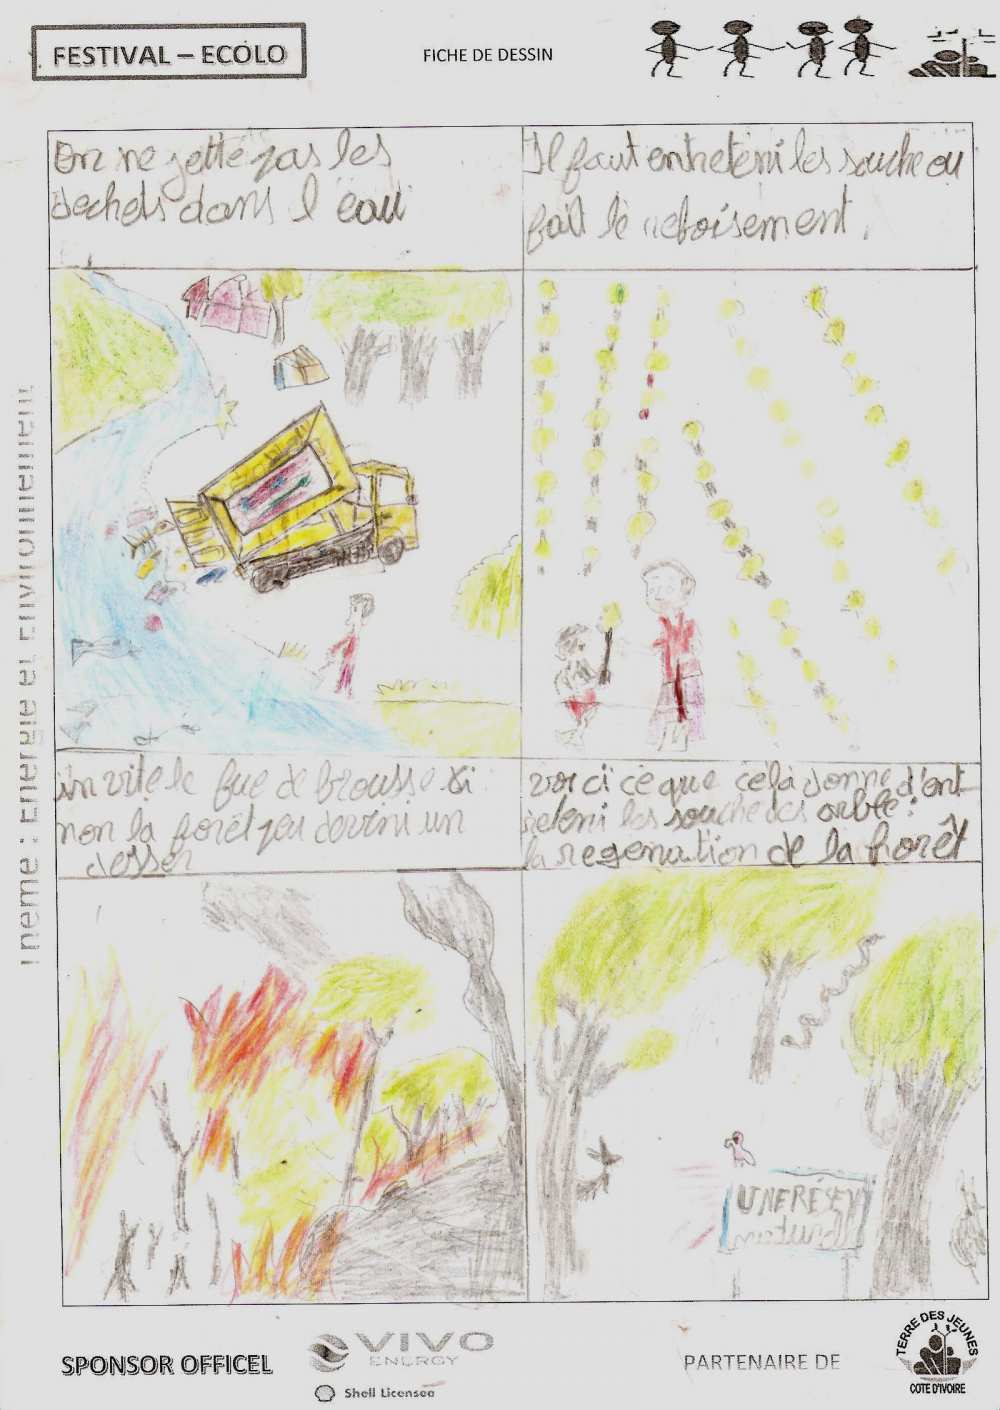 FESTIVAL – ECOLO
FICHE DE DESSIN
On ne jette pas les
dechets dans l'eau
Il faut entreteni les souche ou
fait le reboisement.
Thème : Energie et Environnement
in vite le fue de brousse si
non la forêt peu devini un
desser
voici ce que cela donne d'ent-
reteni les souche des arble :
la regenation de la forêt
UNE RÉSEV
naturell
SPONSOR OFFICEL
VIVO
ENERGY
Shell Licensee
PARTENAIRE DE
TERRE DES JEUNES
COTE D'IVOIRE